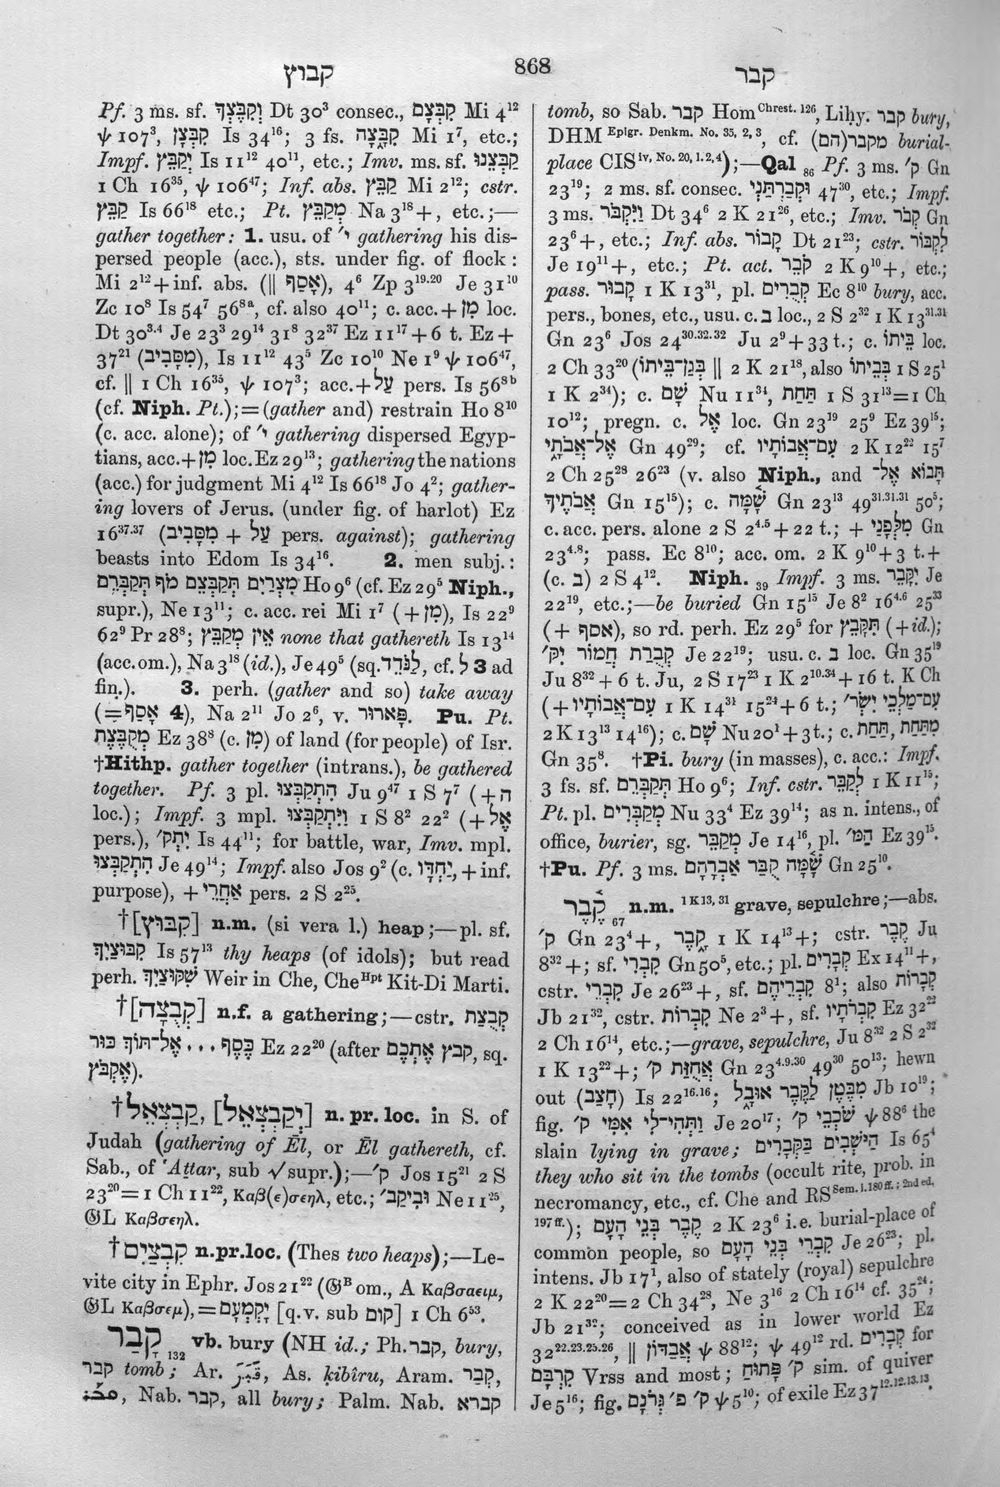 קבוץ
868
קבר
Pf. 3 ms. sf. וְקִבֶּצְךָ Dt 30³ consec., קִבְּצָם Mi 4¹²
ψ 107³, קִבְּצָן Is 34¹⁶; 3 fs. קִבָּ֑צָה Mi 1⁷, etc.;
Impf. יְקַבֵּץ Is 11¹² 40¹¹, etc.; Imv. ms. sf. קַבְּצֵנוּ
1 Ch 16³⁵, ψ 106⁴⁷; Inf. abs. קַבֵּץ Mi 2¹²; cstr.
קַבֵּץ Is 66¹⁸ etc.; Pt. מְקַבֵּץ Na 3¹⁸+, etc.;—
gather together: 1. usu. of ʹי gathering his dis-
persed people (acc.), sts. under fig. of flock:
Mi 2¹²+inf. abs. (|| אָסַף), 4⁶ Zp 3¹⁹·²⁰ Je 31¹⁰
Zc 10⁸ Is 54⁷ 56⁸ᵃ, cf. also 40¹¹; c. acc.+מִן loc.
Dt 30³·⁴ Je 23³ 29¹⁴ 31⁸ 32³⁷ Ez 11¹⁷+6 t. Ez+
37²¹ (מִסָּבִיב), Is 11¹² 43⁵ Zc 10¹⁰ Ne 1⁹ ψ 106⁴⁷,
cf. || 1 Ch 16³⁵, ψ 107³; acc.+עַל pers. Is 56⁸ᵇ
(cf. Niph. Pt.);=(gather and) restrain Ho 8¹⁰
(c. acc. alone); of ʹי gathering dispersed Egyp-
tians, acc.+מִן loc. Ez 29¹³; gathering the nations
(acc.) for judgment Mi 4¹² Is 66¹⁸ Jo 4²; gather-
ing lovers of Jerus. (under fig. of harlot) Ez
16³⁷·³⁷ (מִסָּבִיב + עַל pers. against); gathering
beasts into Edom Is 34¹⁶. 2. men subj.:
מִצְרַיִם תְּקַבְּצֵם מֹף תְּקַבְּרֵם Ho 9⁶ (cf. Ez 29⁵ Niph.,
supr.), Ne 13¹¹; c. acc. rei Mi 1⁷ (+מִן), Is 22⁹
62⁹ Pr 28⁸; אֵין מְקַבֵּץ none that gathereth Is 13¹⁴
(acc. om.), Na 3¹⁸ (id.), Je 49⁵ (sq. לַנֹּדֵד, cf. לְ 3 ad
fin.). 3. perh. (gather and so) take away
(=אָסַף 4), Na 2¹¹ Jo 2⁶, v. פָּארוּר. Pu. Pt.
מְקֻבֶּצֶת Ez 38⁸ (c. מִן) of land (for people) of Isr.
†Hithp. gather together (intrans.), be gathered
together. Pf. 3 pl. הִתְקַבְּצוּ Ju 9⁴⁷ 1 S 7⁷ (+ה
loc.); Impf. 3 mpl. וַיִּתְקַבְּצוּ 1 S 8² 22² (+אֶל
pers.), ʹיִתְק Is 44¹¹; for battle, war, Imv. mpl.
הִתְקַבְּצוּ Je 49¹⁴; Impf. also Jos 9² (c. יַחְדָּו, + inf.
purpose), + אַחֲרֵי pers. 2 S 2²⁵.
†[קִבּוּץ] n.m. (si vera l.) heap;—pl. sf.
קִבּוּצַיִךְ Is 57¹³ thy heaps (of idols); but read
perh. שִׁקּוּצַיִךְ Weir in Che, Cheᴴᵖᵗ Kit-Di Marti.
†[קְבֻצָה] n.f. a gathering;—cstr. קְבֻצַת
כֶּסֶף . . . אֶל־תּוֹךְ כּוּר Ez 22²⁰ (after קבץ אֶתְכֶם, sq.
אֶקְבֹּץ).
†קַבְצְאֵל, [יְקַבְצְאֵל] n. pr. loc. in S. of
Judah (gathering of Ēl, or Ēl gathereth, cf.
Sab., of ʿAttar, sub √ supr.);—ʹק Jos 15²¹ 2 S
23²⁰=1 Ch 11²², Καβ(ε)σεηλ, etc.; ʹוּבִיקַב Ne 11²⁵,
𝔊L Καβσεηλ.
†קִבְצַיִם n.pr.loc. (Thes two heaps);—Le-
vite city in Ephr. Jos 21²² (𝔊ᴮ om., A Καβσαειμ,
𝔊L Καβσεμ),=יָקְמְעָם [q.v. sub קום] 1 Ch 6⁵³.
קָבַר ₁₃₂ vb. bury (NH id.; Ph. קבר, bury,
קבר tomb; Ar. قَبَرَ, As. ḳibîru, Aram. קְבַר,
ܩܒܪ, Nab. קבר, all bury; Palm. Nab. קברא
tomb, so Sab. קבר Hom Chrest. 126, Liḥy. קבר bury,
DHM Epigr. Denkm. No. 35, 2, 3, cf. מקבר(הם) burial-
place CIS iv, No. 20, 1.2,4);—Qal ₈₆ Pf. 3 ms. ʹק Gn
23¹⁹; 2 ms. sf. consec. וּקְבַרְתַּנִי 47³⁰, etc.; Impf.
3 ms. וַיִּקְבֹּר Dt 34⁶ 2 K 21²⁶, etc.; Imv. קְבֹר Gn
23⁶+, etc.; Inf. abs. קָבוֹר Dt 21²³; cstr. לִקְבּוֹר
Je 19¹¹+, etc.; Pt. act. קֹבֵר 2 K 9¹⁰+, etc.;
pass. קָבוּר 1 K 13³¹, pl. קְבֻרִים Ec 8¹⁰ bury, acc.
pers., bones, etc., usu. c. בְּ loc., 2 S 2³² 1 K 13³¹·³¹
Gn 23⁶ Jos 24³⁰·³²·³² Ju 2⁹+33 t.; c. בֵּיתוֹ loc.
2 Ch 33²⁰ (בְּגַן־בֵּיתוֹ || 2 K 21¹⁸, also בְּבֵיתוֹ 1 S 25¹
1 K 2³⁴); c. שָׁם Nu 11³⁴, תַּחַת 1 S 31¹³=1 Ch
10¹²; pregn. c. אֶל loc. Gn 23¹⁹ 25⁹ Ez 39¹⁵;
אֶל־אֲבֹתָי Gn 49²⁹; cf. עִם־אֲבוֹתָיו 2 K 12²² 15⁷
2 Ch 25²⁸ 26²³ (v. also Niph., and תָּבוֹא אֶל־
אֲבֹתֶיךָ Gn 15¹⁵); c. שָׁמָּה Gn 23¹³ 49³¹·³¹·³¹ 50⁵;
c. acc. pers. alone 2 S 2⁴·⁵+22 t.; + מִלְּפָנַי Gn
23⁴·⁸; pass. Ec 8¹⁰; acc. om. 2 K 9¹⁰+3 t.+
(c. בְּ) 2 S 4¹². Niph. ₃₉ Impf. 3 ms. יִקָּבֵר Je
22¹⁹, etc.;—be buried Gn 15¹⁵ Je 8² 16⁴·⁶ 25³³
(+ אסף), so rd. perh. Ez 29⁵ for תִּקָּבֵץ (+id.);
קְבֻרַת חֲמוֹר יִקּʹ Je 22¹⁹; usu. c. בְּ loc. Gn 35¹⁹
Ju 8³²+6 t. Ju, 2 S 17²³ 1 K 2¹⁰·³⁴+16 t. K Ch
(+עִם־אֲבוֹתָיו 1 K 14³¹ 15²⁴+6 t.; ʹעִם־מַלְכֵי יִשְׂר
2 K 13¹³ 14¹⁶); c. שָׁם Nu 20¹+3 t.; c. מִתַּחַת, תַּחַת
Gn 35⁸. †Pi. bury (in masses), c. acc.: Impf.
3 fs. sf. תְּקַבְּרֵם Ho 9⁶; Inf. cstr. לְקַבֵּר 1 K 11¹⁵;
Pt. pl. מְקַבְּרִים Nu 33⁴ Ez 39¹⁴; as n. intens., of
office, burier, sg. מְקַבֵּר Je 14¹⁶, pl. ʹהַמּ Ez 39¹⁵.
†Pu. Pf. 3 ms. שָׁמָּה קֻבַּר אַבְרָהָם Gn 25¹⁰.
קֶבֶר ₆₇ n.m. 1 K 13, 31 grave, sepulchre;—abs.
ʹק Gn 23⁴+, קָבֶר 1 K 14¹³+; cstr. קֶבֶר Ju
8³²+; sf. קִבְרִי Gn 50⁵, etc.; pl. קְבָרִים Ex 14¹¹+,
cstr. קִבְרֵי Je 26²³+, sf. קִבְרֵיהֶם 8¹; also קְבָרוֹת
Jb 21³², cstr. קִבְרוֹת Ne 2³+, sf. קִבְרֹתָיו Ez 32²²
2 Ch 16¹⁴, etc.;—grave, sepulchre, Ju 8³² 2 S 2³²
1 K 13²²+; אֲחֻזַּת ק׳ Gn 23⁴·⁹·³⁰ 49³⁰ 50¹³; hewn
out (חָצַב) Is 22¹⁶·¹⁶; מִבֶּטֶן לַקֶּבֶר אוּבָל Jb 10¹⁹;
fig. וַתְּהִי־לִי אִמִּי ק׳ Je 20¹⁷; שֹׁכְבֵי ק׳ ψ 88⁶ the
slain lying in grave; הַיּשְׁבִים בַּקְּבָרִים Is 65⁴
they who sit in the tombs (occult rite, prob. in
necromancy, etc., cf. Che and RS Sem. i. 180 ff.; 2nd ed.
197 ff.); קֶבֶר בְּנֵי הָעָם 2 K 23⁶ i.e. burial-place of
common people, so קִבְרֵי בְּנֵי הָעָם Je 26²³; pl.
intens. Jb 17¹, also of stately (royal) sepulchre
2 K 22²⁰=2 Ch 34²⁸, Ne 3¹⁶ 2 Ch 16¹⁴ cf. 35²⁴,
Jb 21³²; conceived as in lower world Ez
32²²·²³·²⁵·²⁶, || אֲבַדּוֹן ψ 88¹²; ψ 49¹² rd. קְבָרִים for
קִרְבָּם Vrss and most; פָּתוּחַ ק׳ sim. of quiver
Je 5¹⁶; fig. ק׳ פ׳ גְּרֹנָם ψ 5¹⁰; of exile Ez 37¹²·¹²·¹³·¹³.